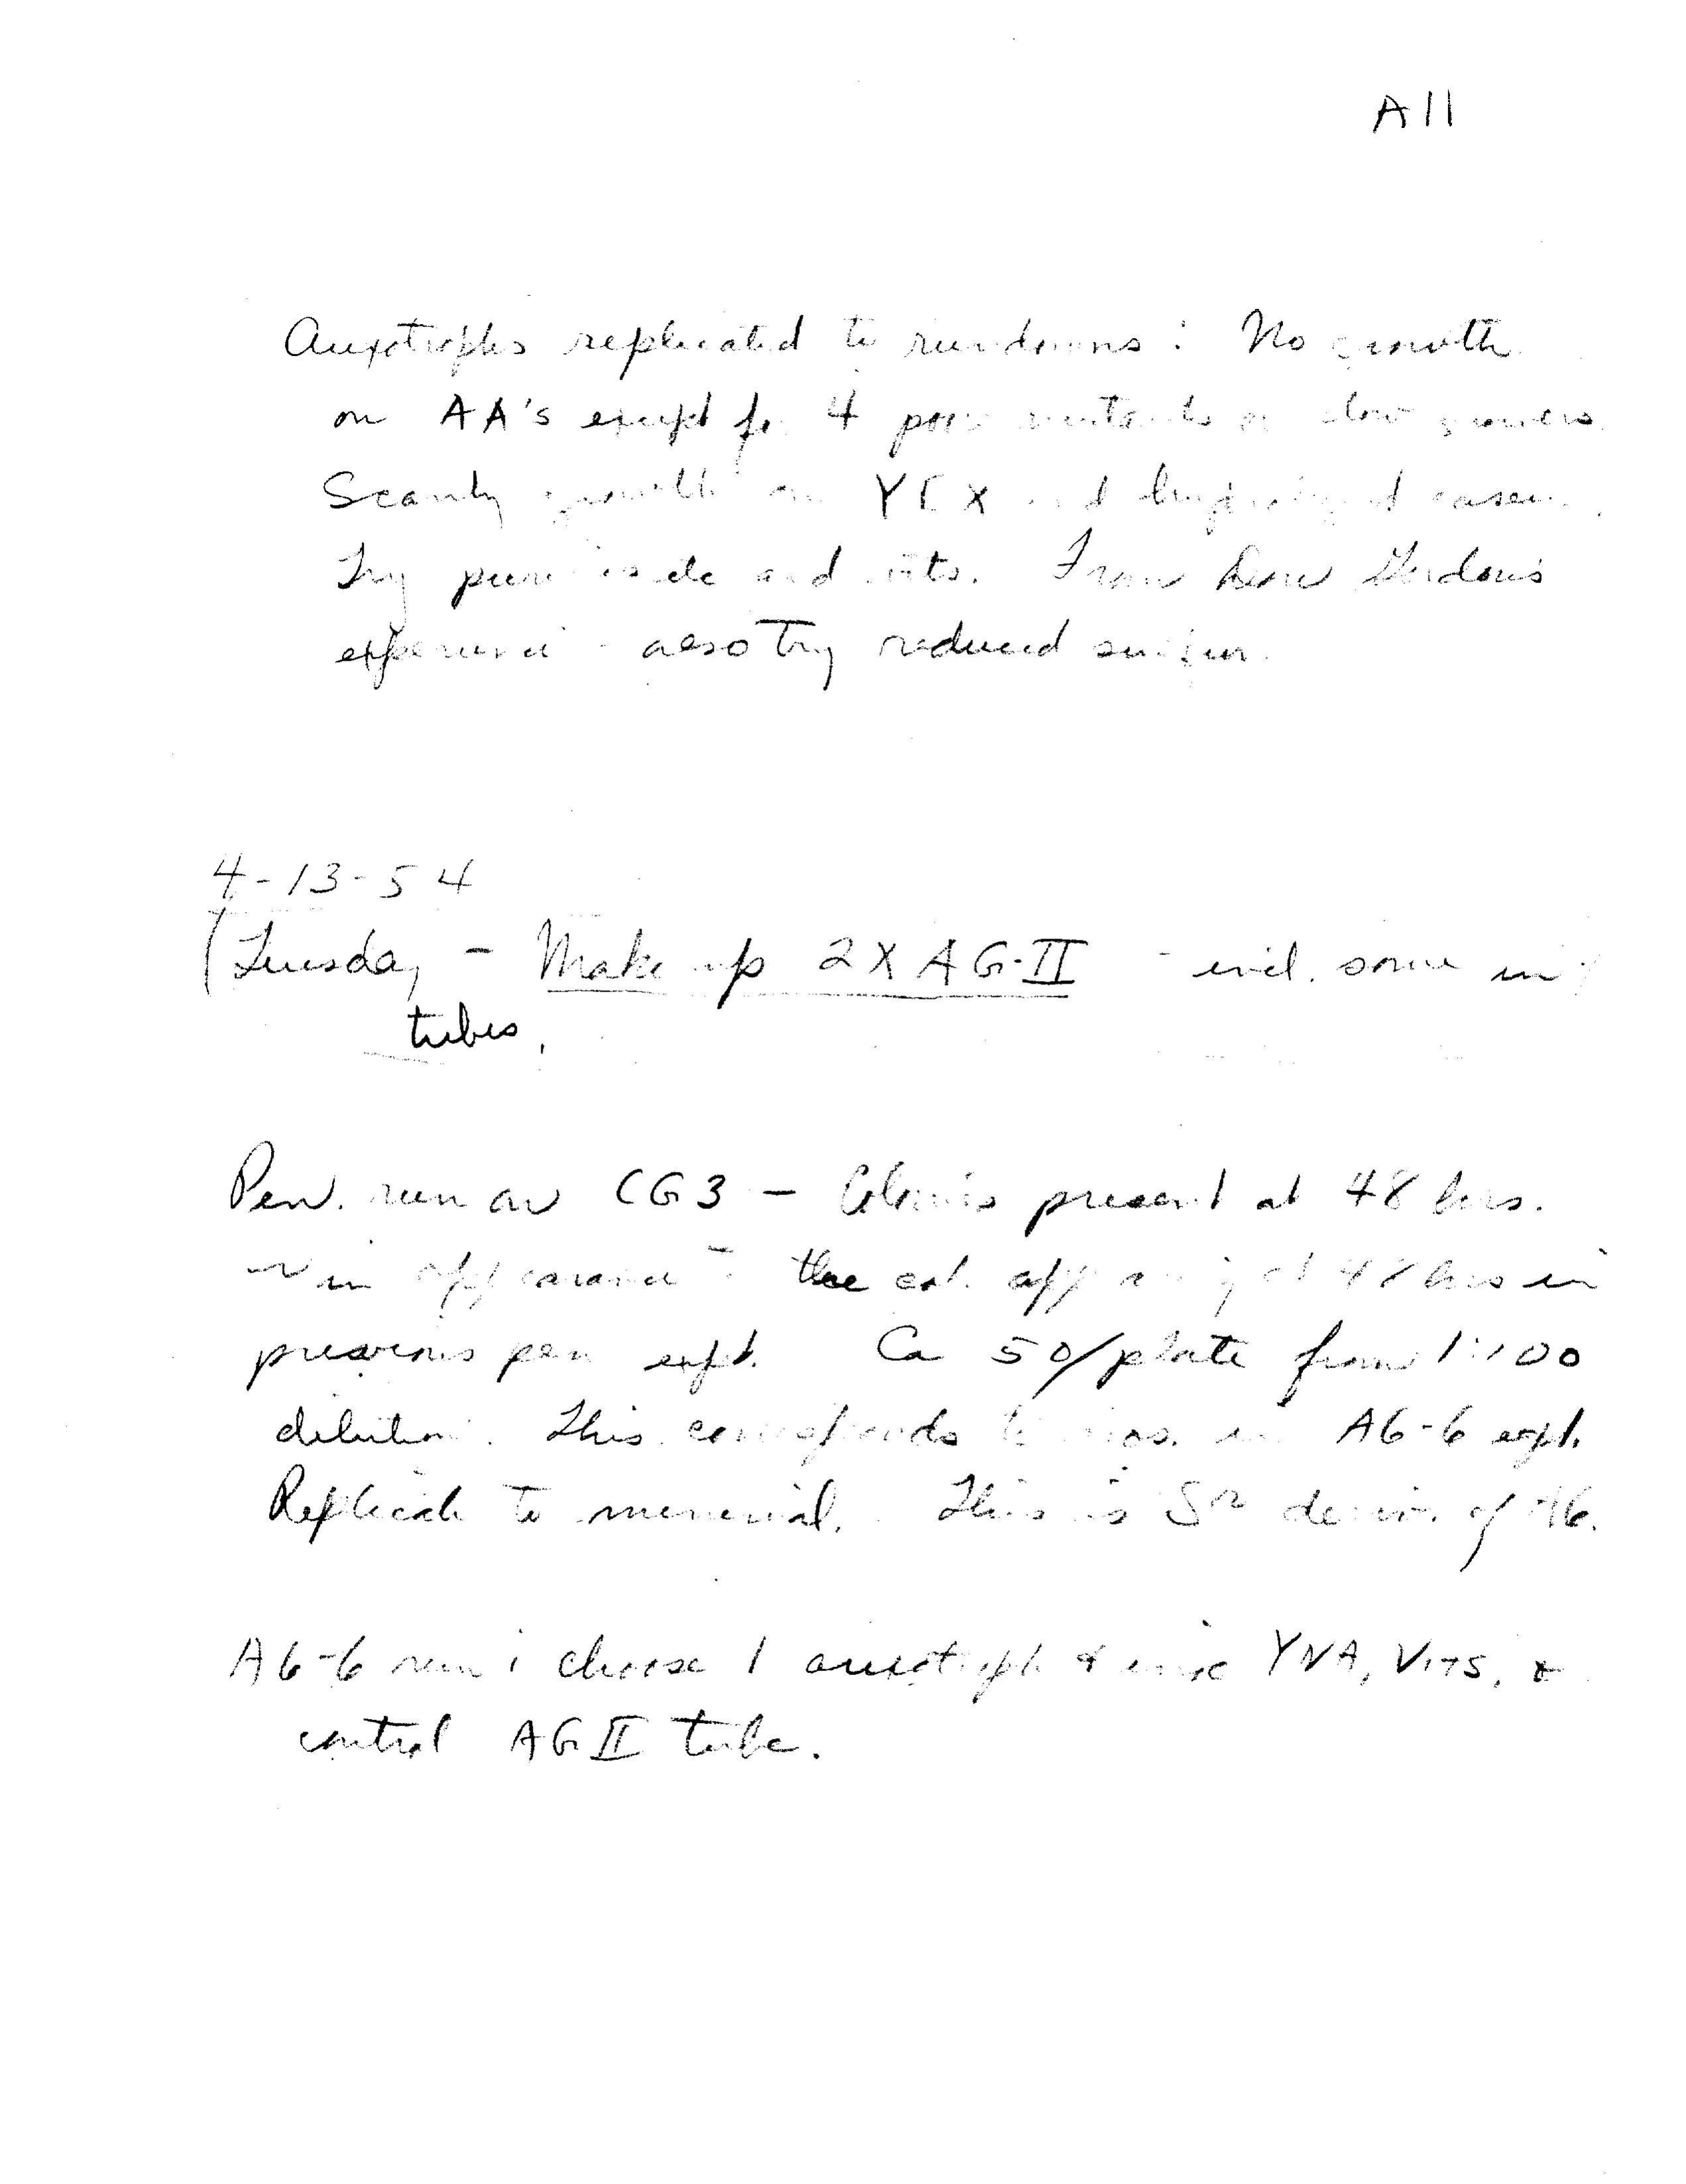 A11
Auxotrophs replicated to rundowns: No growth
on AA's except for 4 poor mutants or slow growers.
Scanty growth on YEX and hydrolyzed casein.
Try purines etc and vits. From
experience - also try reduced sulfur.
4-13-54
(Tuesday - Make up 2X AG-II - incl. some in
tubes.
Pen. run on CG3 - Colonies present at 48 hrs.
~ in appearance to the col. appearing at 48 hrs in
previous pen expt. Ca 50/plate from 1:100
dilution. This corresponds to nos. in A6-6 expt.
Replicate to minimal. This is Sr deriv. of A6.
A6-6 run: choose 1 auxotroph & inoc YNA, Vits, &
control AGII tube.